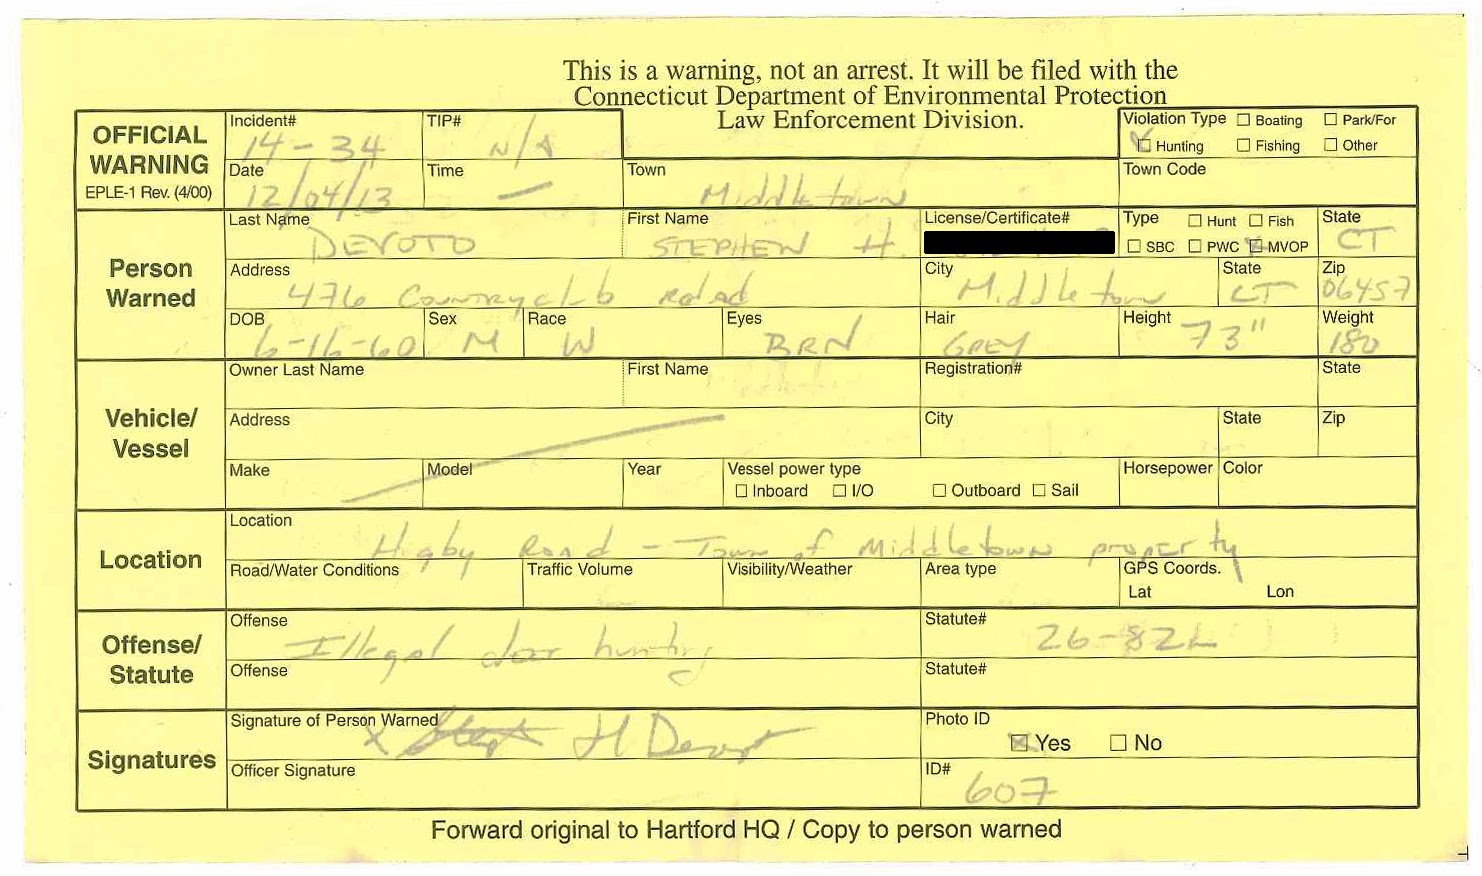 This is a warning, not an arrest. It will be filed with the
Connecticut Department of Environmental Protection
Law Enforcement Division.
OFFICIAL WARNING
EPLE-1 Rev. (4/00)
Incident# 14-34
TIP# N/A
Violation Type ☐ Boating ☐ Park/For
☒ Hunting ☐ Fishing ☐ Other
Date 12/04/13
Time —
Town Middletown
Town Code
Person Warned
Last Name DEVOTO
First Name STEPHEN H.
License/Certificate#
Type ☐ Hunt ☐ Fish
☐ SBC ☐ PWC ☒ MVOP
State CT
Address 476 Country club Road
City Middletown
State CT
Zip 06457
DOB 6-16-60
Sex M
Race W
Eyes BRN
Hair GREY
Height 73"
Weight 180
Vehicle/ Vessel
Owner Last Name
First Name
Registration#
State
Address
City
State
Zip
Make
Model
Year
Vessel power type
☐ Inboard ☐ I/O ☐ Outboard ☐ Sail
Horsepower
Color
Location
Location Higby Road - Town of Middletown property
Road/Water Conditions
Traffic Volume
Visibility/Weather
Area type
GPS Coords.
Lat Lon
Offense/ Statute
Offense Illegal deer hunting
Statute# 26-82
Offense
Statute#
Signatures
Signature of Person Warned x H Devoto
Photo ID
☒ Yes ☐ No
Officer Signature
ID# 607
Forward original to Hartford HQ / Copy to person warned